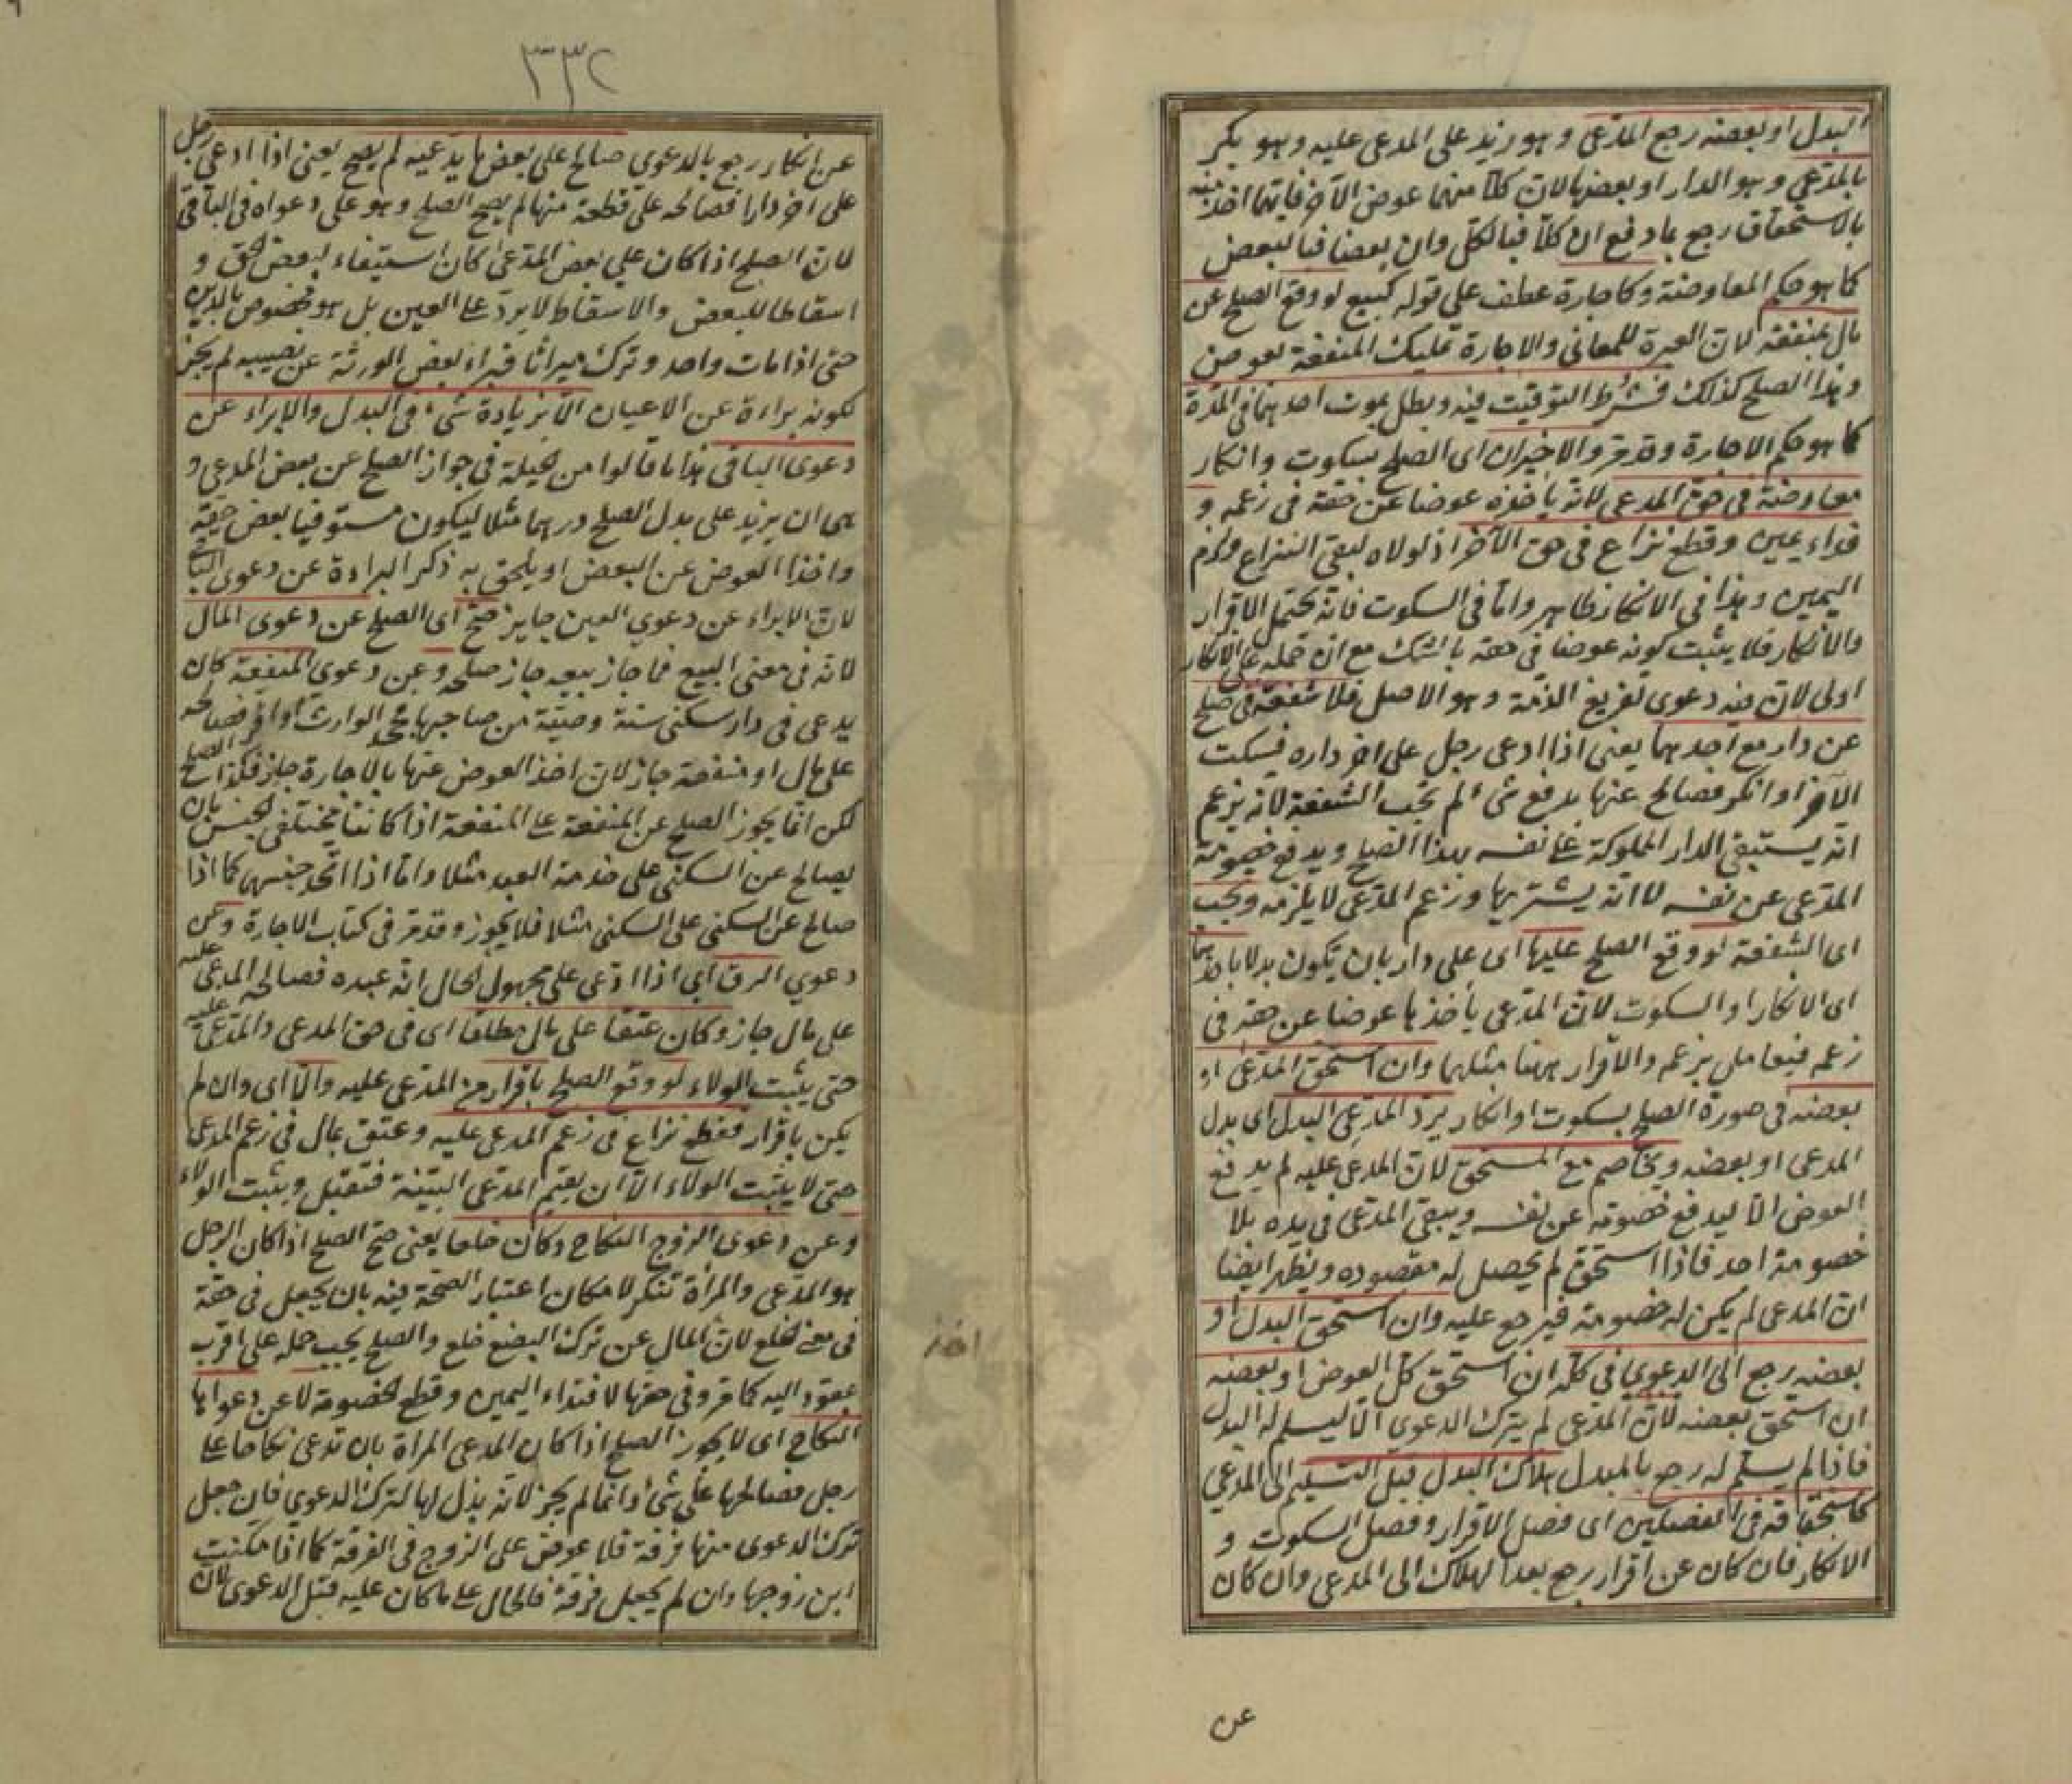 البدل او بعضه رجع المدعى وهو زيد على المدعى عليه وهو بكر
بالمدعى وهو الدار او بعضها لان كلا منهما عوض الآخر فايهما اخذ منه
بالاستحقاق رجع بما دفع ان كلا فبالكل وان بعضا فبالبعض
كما هو حكم المعاوضة وكاجارة عطف على قوله كبيع لو وقع الصلح عن
مال بمنفعة لان العبرة للمعانى والاجارة تمليك المنفعة بعوض
وهذا الصلح كذلك فشرط التوقيت فيه وبطل بموت احدهما فى المدة
كما هو حكم الاجارة وقد مر والاخيران اى الصلح بسكوت وانكار
معاوضة فى حق المدعى لانه يأخذه عوضا عن حقه فى زعمه و
فداء يمين وقطع نزاع فى حق الآخر اذ لولاه لبقى النزاع ولزم
اليمين وهذا فى الانكار ظاهر واما فى السكوت فانه يحتمل الاقرار
والانكار فلا يثبت كونه عوضا فى حقه بالشك مع ان حمله على الانكار
اولى لان فيه دعوى تفريغ الذمة وهو الاصل فلا شفعة فى صلح
عن دار مع احدهما يعنى اذا ادعى رجل على اخر داره فسكت
الآخر او انكر فصالح عنها بدفع شئ لم تجب الشفعة لانه يزعم
انه يستبقى الدار المملوكة على نفسه بهذا الصلح ويدفع خصومة
المدعى عن نفسه لا انه يشتريها وزعم المدعى لا يلزمه وتجب
اى الشفعة لو وقع الصلح عليها اى على دار بان تكون بدلا باحدهما
اى الانكار او السكوت لان المدعى يأخذها عوضا عن حقه فى
زعمه فيعامل بزعمه والاقرار ههنا مثلهما وان استحق المدعى او
بعضه فى صورة الصلح بسكوت او انكار يرد المدعى البدل اى بدل
المدعى او بعضه ويخاصم مع المستحق لان المدعى عليه لم يدفع
العوض الا ليدفع خصومته عن نفسه ويبقى المدعى فى يده بلا
خصومة احد فاذا استحق لم يحصل له مقصوده ويظهر ايضا
ان المدعى لم يكن له خصومة فيرجع عليه وان استحق البدل او
بعضه يرجع الى الدعوى فى كله ان استحق كل العوض او بعضه
ان استحق بعضه لان المدعى لم يترك الدعوى الا ليسلم له البدل
فاذا لم يسلم له رجع بالمبدل هلاك البدل قبل التسليم الى المدعى
كاستحقاقه فى الفصلين اى فصل الاقرار وفصل السكوت و
الانكار فان كان عن اقرار رجع بعد الهلاك الى المدعى وان كان
عن
٣٣٢
عن انكار رجع بالدعوى صالح على بعض ما يدعيه لم يصح يعنى اذا ادعى رجل
على اخر دارا فصالحه على قطعة منها لم يصح الصلح وهو على دعواه فى الباقى
لان الصلح اذا كان على بعض المدعى كان استيفاء لبعض الحق و
اسقاطا للبعض والاسقاط لا يرد على العين بل هو مخصوص بالدين
حتى اذا مات واحد وترك ميراثا فبراء بعض الورثة عن نصيبه لم يجز
لكونه براءة عن الاعيان الا بزيادة شئ فى البدل والابراء عن
دعوى الباقى هذا ما قالوا من الحيلة فى جواز الصلح عن بعض المدعى و
هى ان يزيد على بدل الصلح درهما مثلا ليكون مستوفيا بعض حقه
واخذا العوض عن البعض او يلحق به ذكر البراءة عن دعوى الباقى
لان الابراء عن دعوى العين جايز صح اى الصلح عن دعوى المال
لانه فى معنى البيع فما جاز بيعه جاز صلحه وعن دعوى المنفعة كان
يدعى فى دار سكنى سنة وصية من صاحبها فجحد الوارث او اقر فصالحه
على مال او منفعة جاز لان اخذ العوض عنها بالاجارة جاز فكذا الصلح
لكن انما يجوز الصلح عن المنفعة على المنفعة اذا كانتا مختلفى الجنس بان
يصالح عن السكنى على خدمة العبد مثلا واما اذا اتحد جنسهما كما اذا
صالح عن السكنى على السكنى مثلا فلا يجوز وقد مر فى كتاب الاجارة وعن
دعوى الرق اى اذا ادعى على مجهول الحال انه عبده فصالحه المدعى عليه
على مال جاز وكان عتقا على مال مطلقا اى فى حق المدعى والمدعى عليه
حتى يثبت الولاء لو وقع الصلح باقرار من المدعى عليه والا اى وان لم
يكن باقرار فقطع نزاع فى زعم المدعى عليه وعتق بمال فى زعم المدعى
حتى لا يثبت الولاء الا ان يقيم المدعى البينة فتقبل ويثبت الولاء
وعن دعوى الزوج النكاح وكان خلعا يعنى صح الصلح اذا كان الرجل
هو المدعى والمرأة تنكر لامكان اعتبار الصحة فيه بان يجعل فى حقه
فى معنى الخلع لان المال عن ترك البضع خلع والصلح يجب حمله على اقرب
عقود اليه كما مر وفى حقها لافتداء اليمين وقطع الخصومة لا عن دعواها
النكاح اى لا يجوز الصلح اذا كان المدعى المرأة بان تدعى نكاحا على
رجل فصالحها على شئ وانما لم يجز لانه بذل لها لترك الدعوى فان جعل
ترك الدعوى منها فرقة فلا عوض على الزوج فى الفرقة كما اذا مكنت
ابن زوجها وان لم يجعل فرقة فالحال على ما كان عليه قبل الدعوى لان